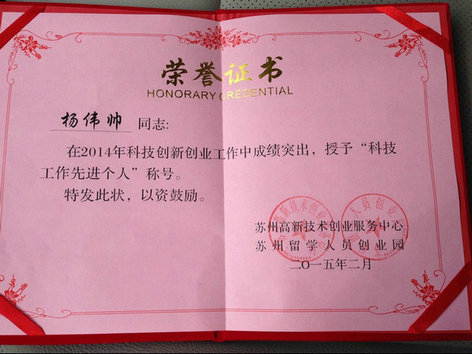 荣誉证书
HONORARY CREDENTIAL
杨伟帅 同志:
在2014年科技创新创业工作中成绩突出，授予“科技
工作先进个人”称号。
特发此状，以资鼓励。
苏州高新技术创业服务中心
苏州留学人员创业园
二〇一五年二月